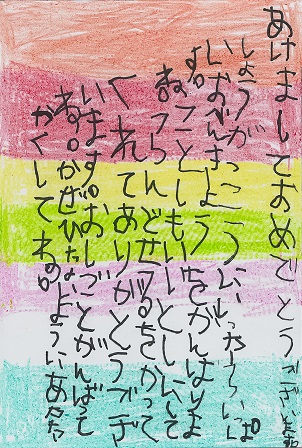 あけましておめでとうございます
しょうがっこういいったらいっぱ
いおべんきょうをがんばりま
す。ことしもいいとしにして
ね。らんどせるをかって
くれてありがとうござ
います。おしごとがんばって
ね。かぜひかないよういあたた
かくしてね。